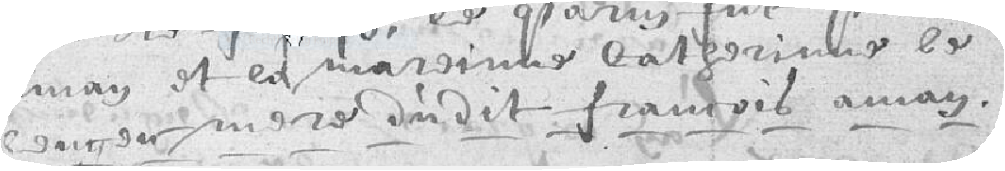 le parin fut
may et la mareinne Catherinne le
mere dudit francois amay.